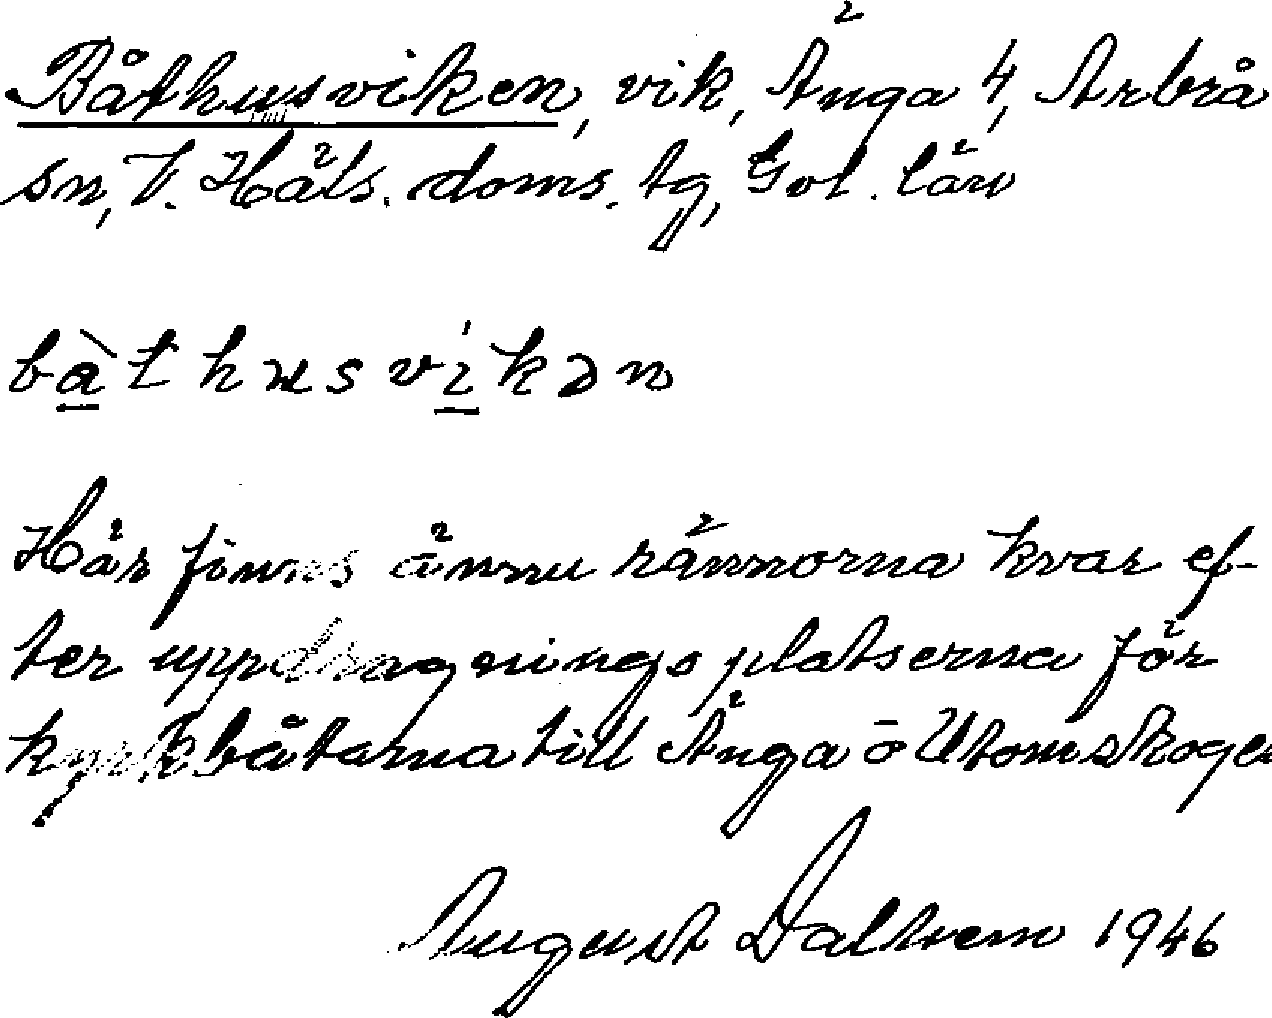 Båthusviken, vik, Änga 4, Arbrå
sn, V. Häls. doms. tg, Gvl. län
bàthusvikən
Här finns ännu rännorna kvar ef-
ter uppdragningsplatserna för
kyrkbåtarna till Änga o Utomskogen
August Daltrem 1946